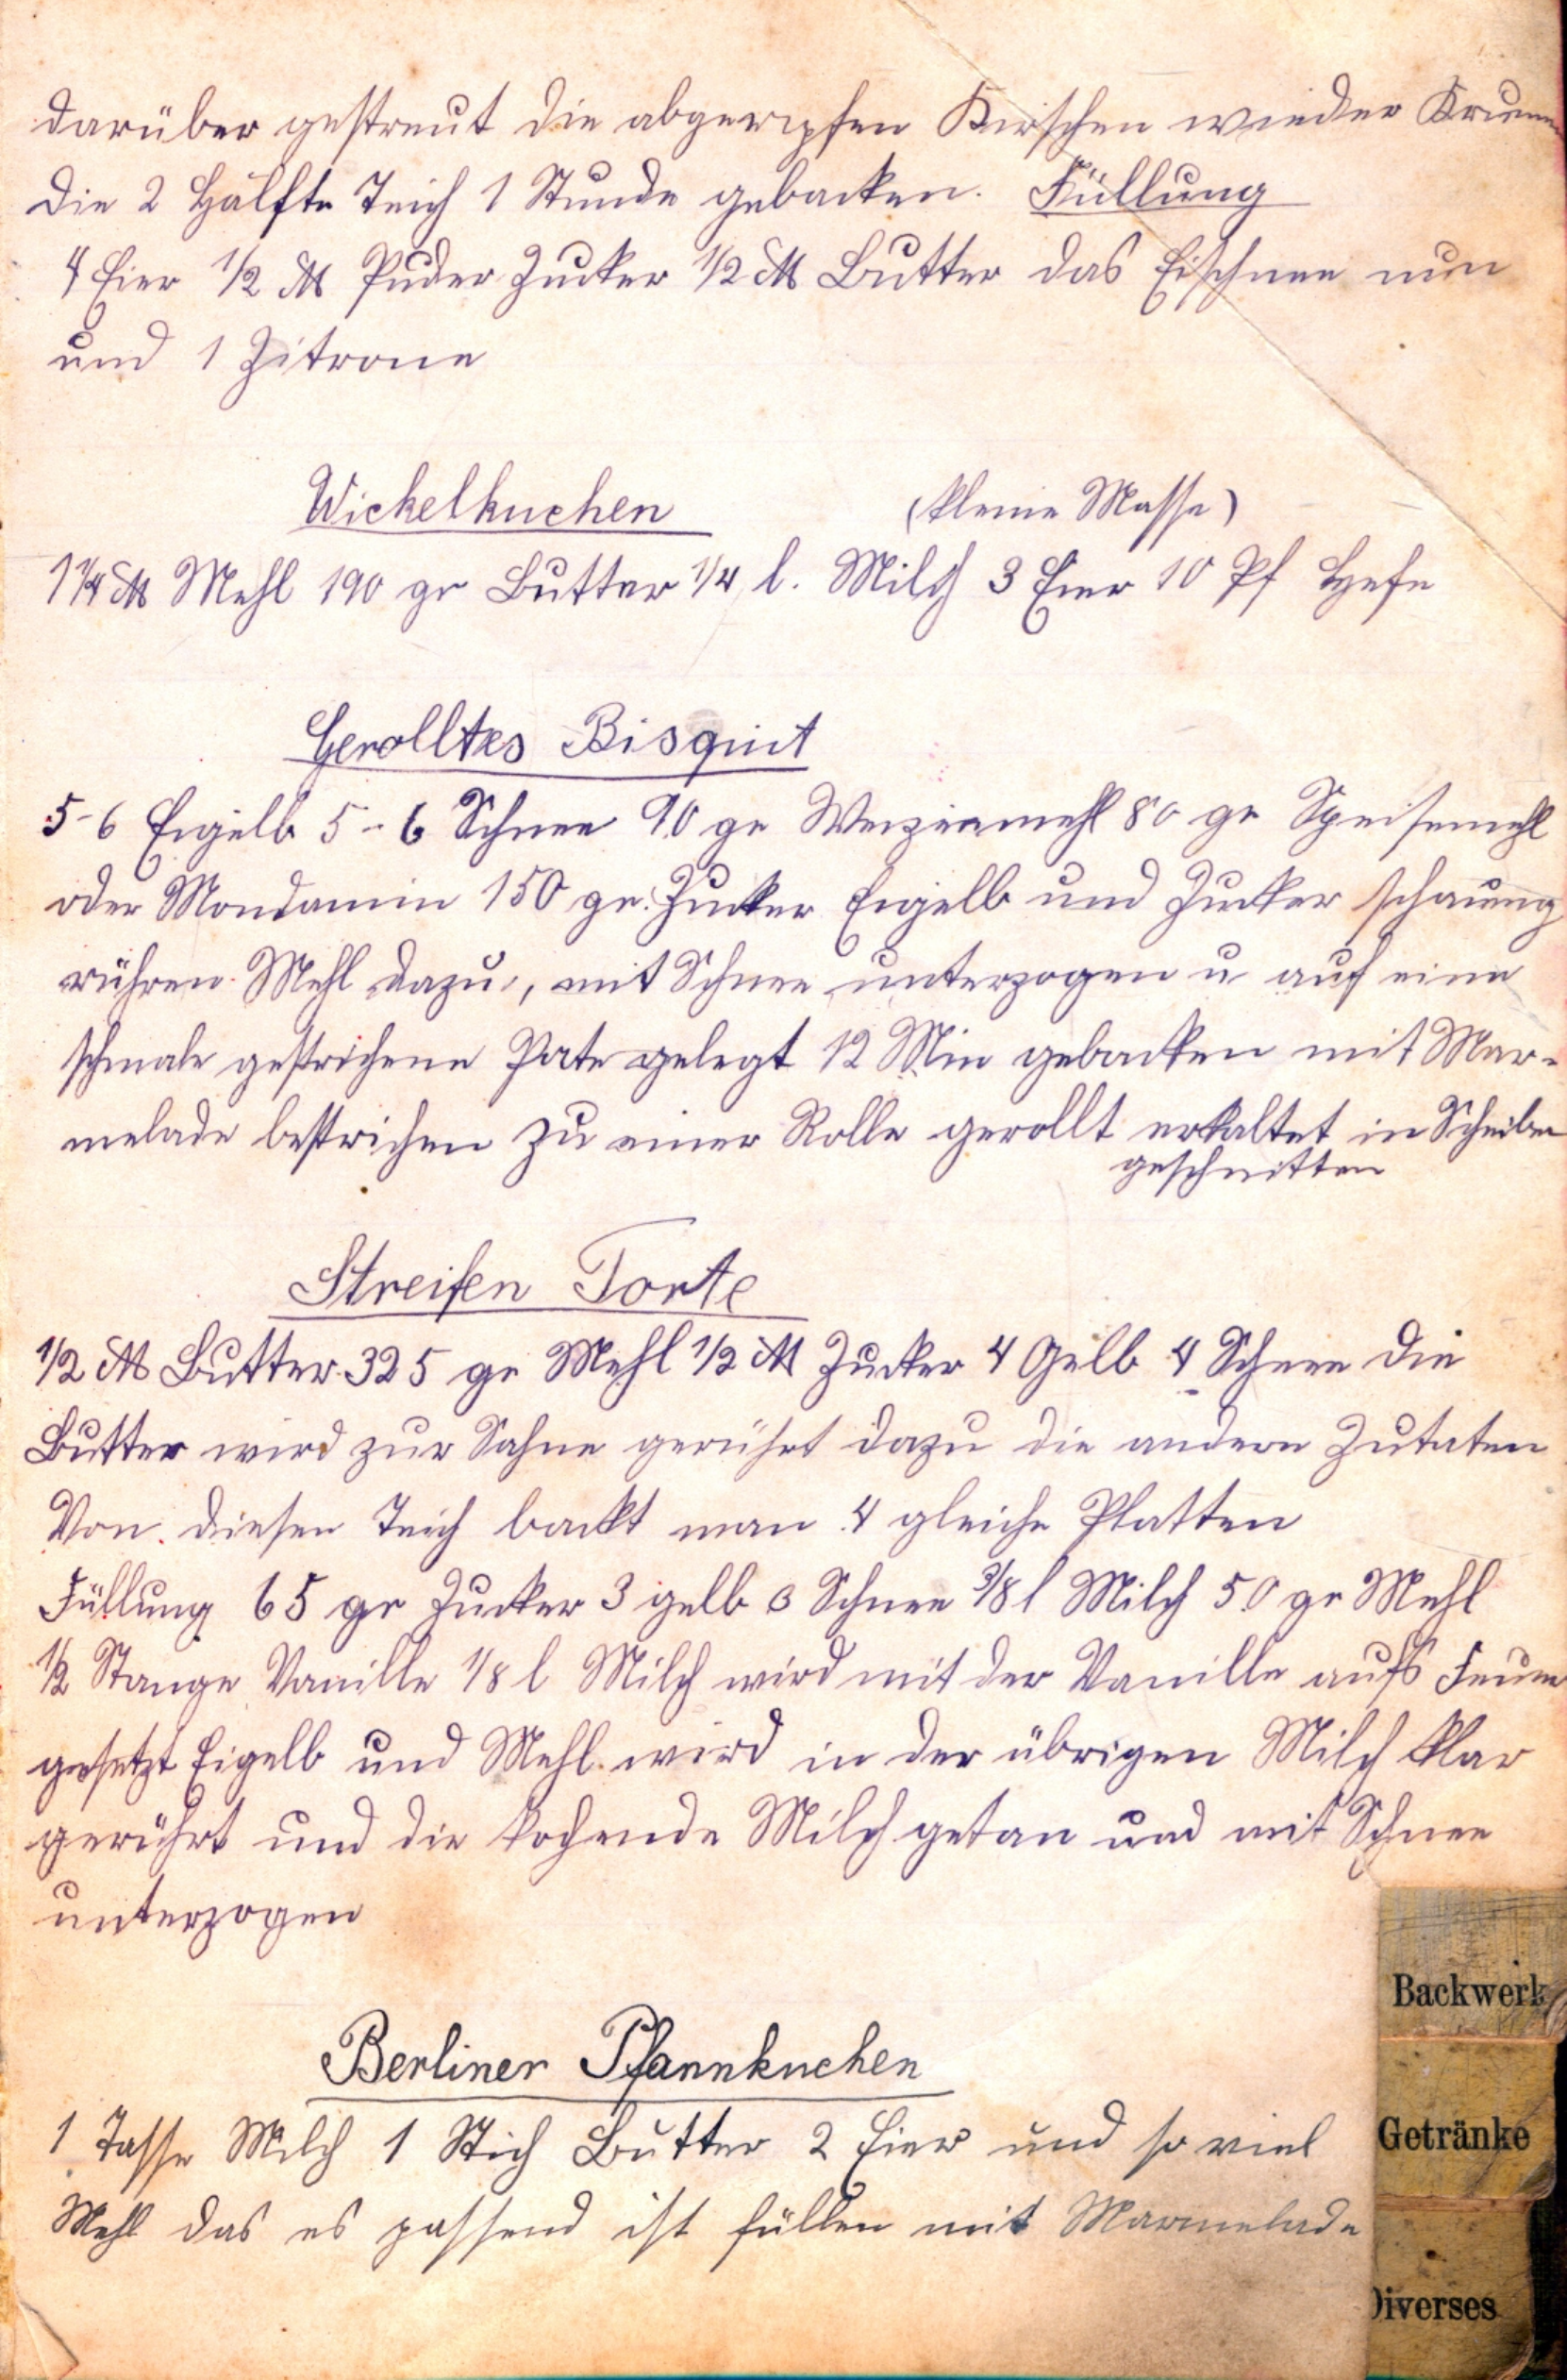 darüber gestreut die abgeripsten Kirschen wieder Krumen
die 2 Hälfte Teich 1 Stunde gebacken. Füllung
4 Eier 1/2 ℔ Puder Zucker 1/2 ℔ Butter das Eischnee nun
und 1 Zitrone
Wickelkuchen (kleine Masse)
1 1/4 ℔ Mehl 190 gr Butter 1/4 l. Milch 3 Eier 10 Pf Hefe
Gerolltes Bisquit
5-6 Eigelb 5-6 Schnee 90 gr Weizenmehl 80 gr Speisemehl
oder Mondamin 150 gr. Zucker Eigelb und Zucker schaumig
rühren Mehl dazu, mit Schnee unterzogen u auf eine
schmale gestrichene Pate gelegt 12 Min gebacken mit Mar-
melade bestrichen zu einer Rolle gerollt erkaltet in Scheiben
geschnitten
Streifen Torte
1/2 ℔ Butter 325 gr Mehl 1/2 ℔ Zucker 4 Gelb 4 Schnee die
Butter wird zur Sahne gerührt dazu die andern Zutaten
Von diesen Teich backt man 4 gleiche Platten
Füllung 65 gr Zucker 3 gelb 3 Schnee 3/8 l Milch 50 gr Mehl
1/2 Stange Vanille 1/8 l Milch wird mit der Vanille aufs Feuer
gesetzt Eigelb und Mehl wird in der übrigen Milch klar
gerührt und die kochende Milch getan und mit Schnee
unterzogen
Berliner Pfannkuchen
1 Tasse Milch 1 Stich Butter 2 Eier und so viel
Mehl das es passend ist füllen mit Marmelade
Backwerk
Getränke
Diverses